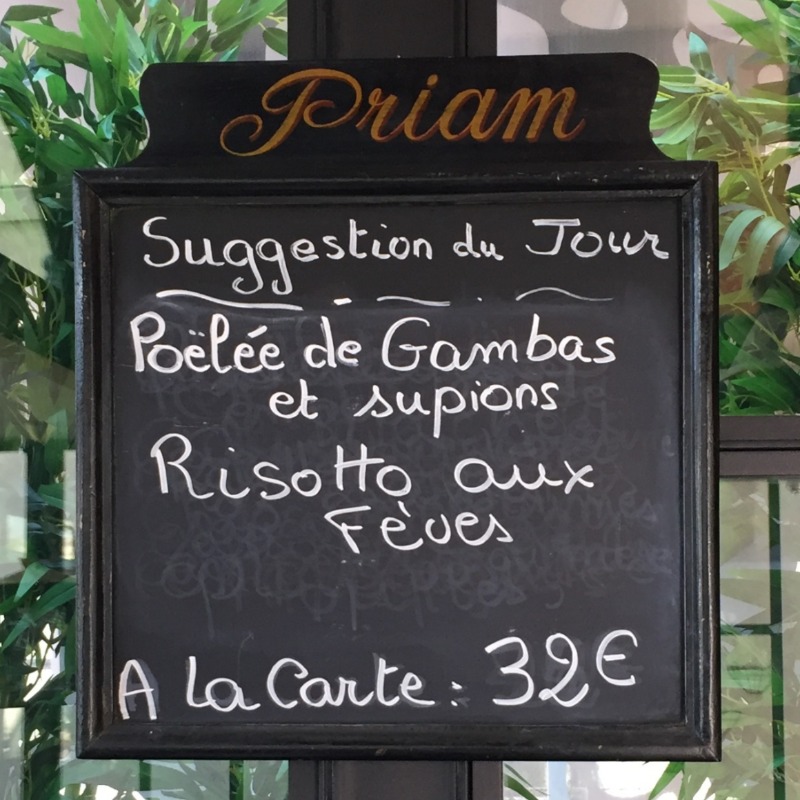 Priam
Suggestion du Jour
Poëlée de Gambas
et supions
Risotto aux
Fèves
A La Carte : 32€